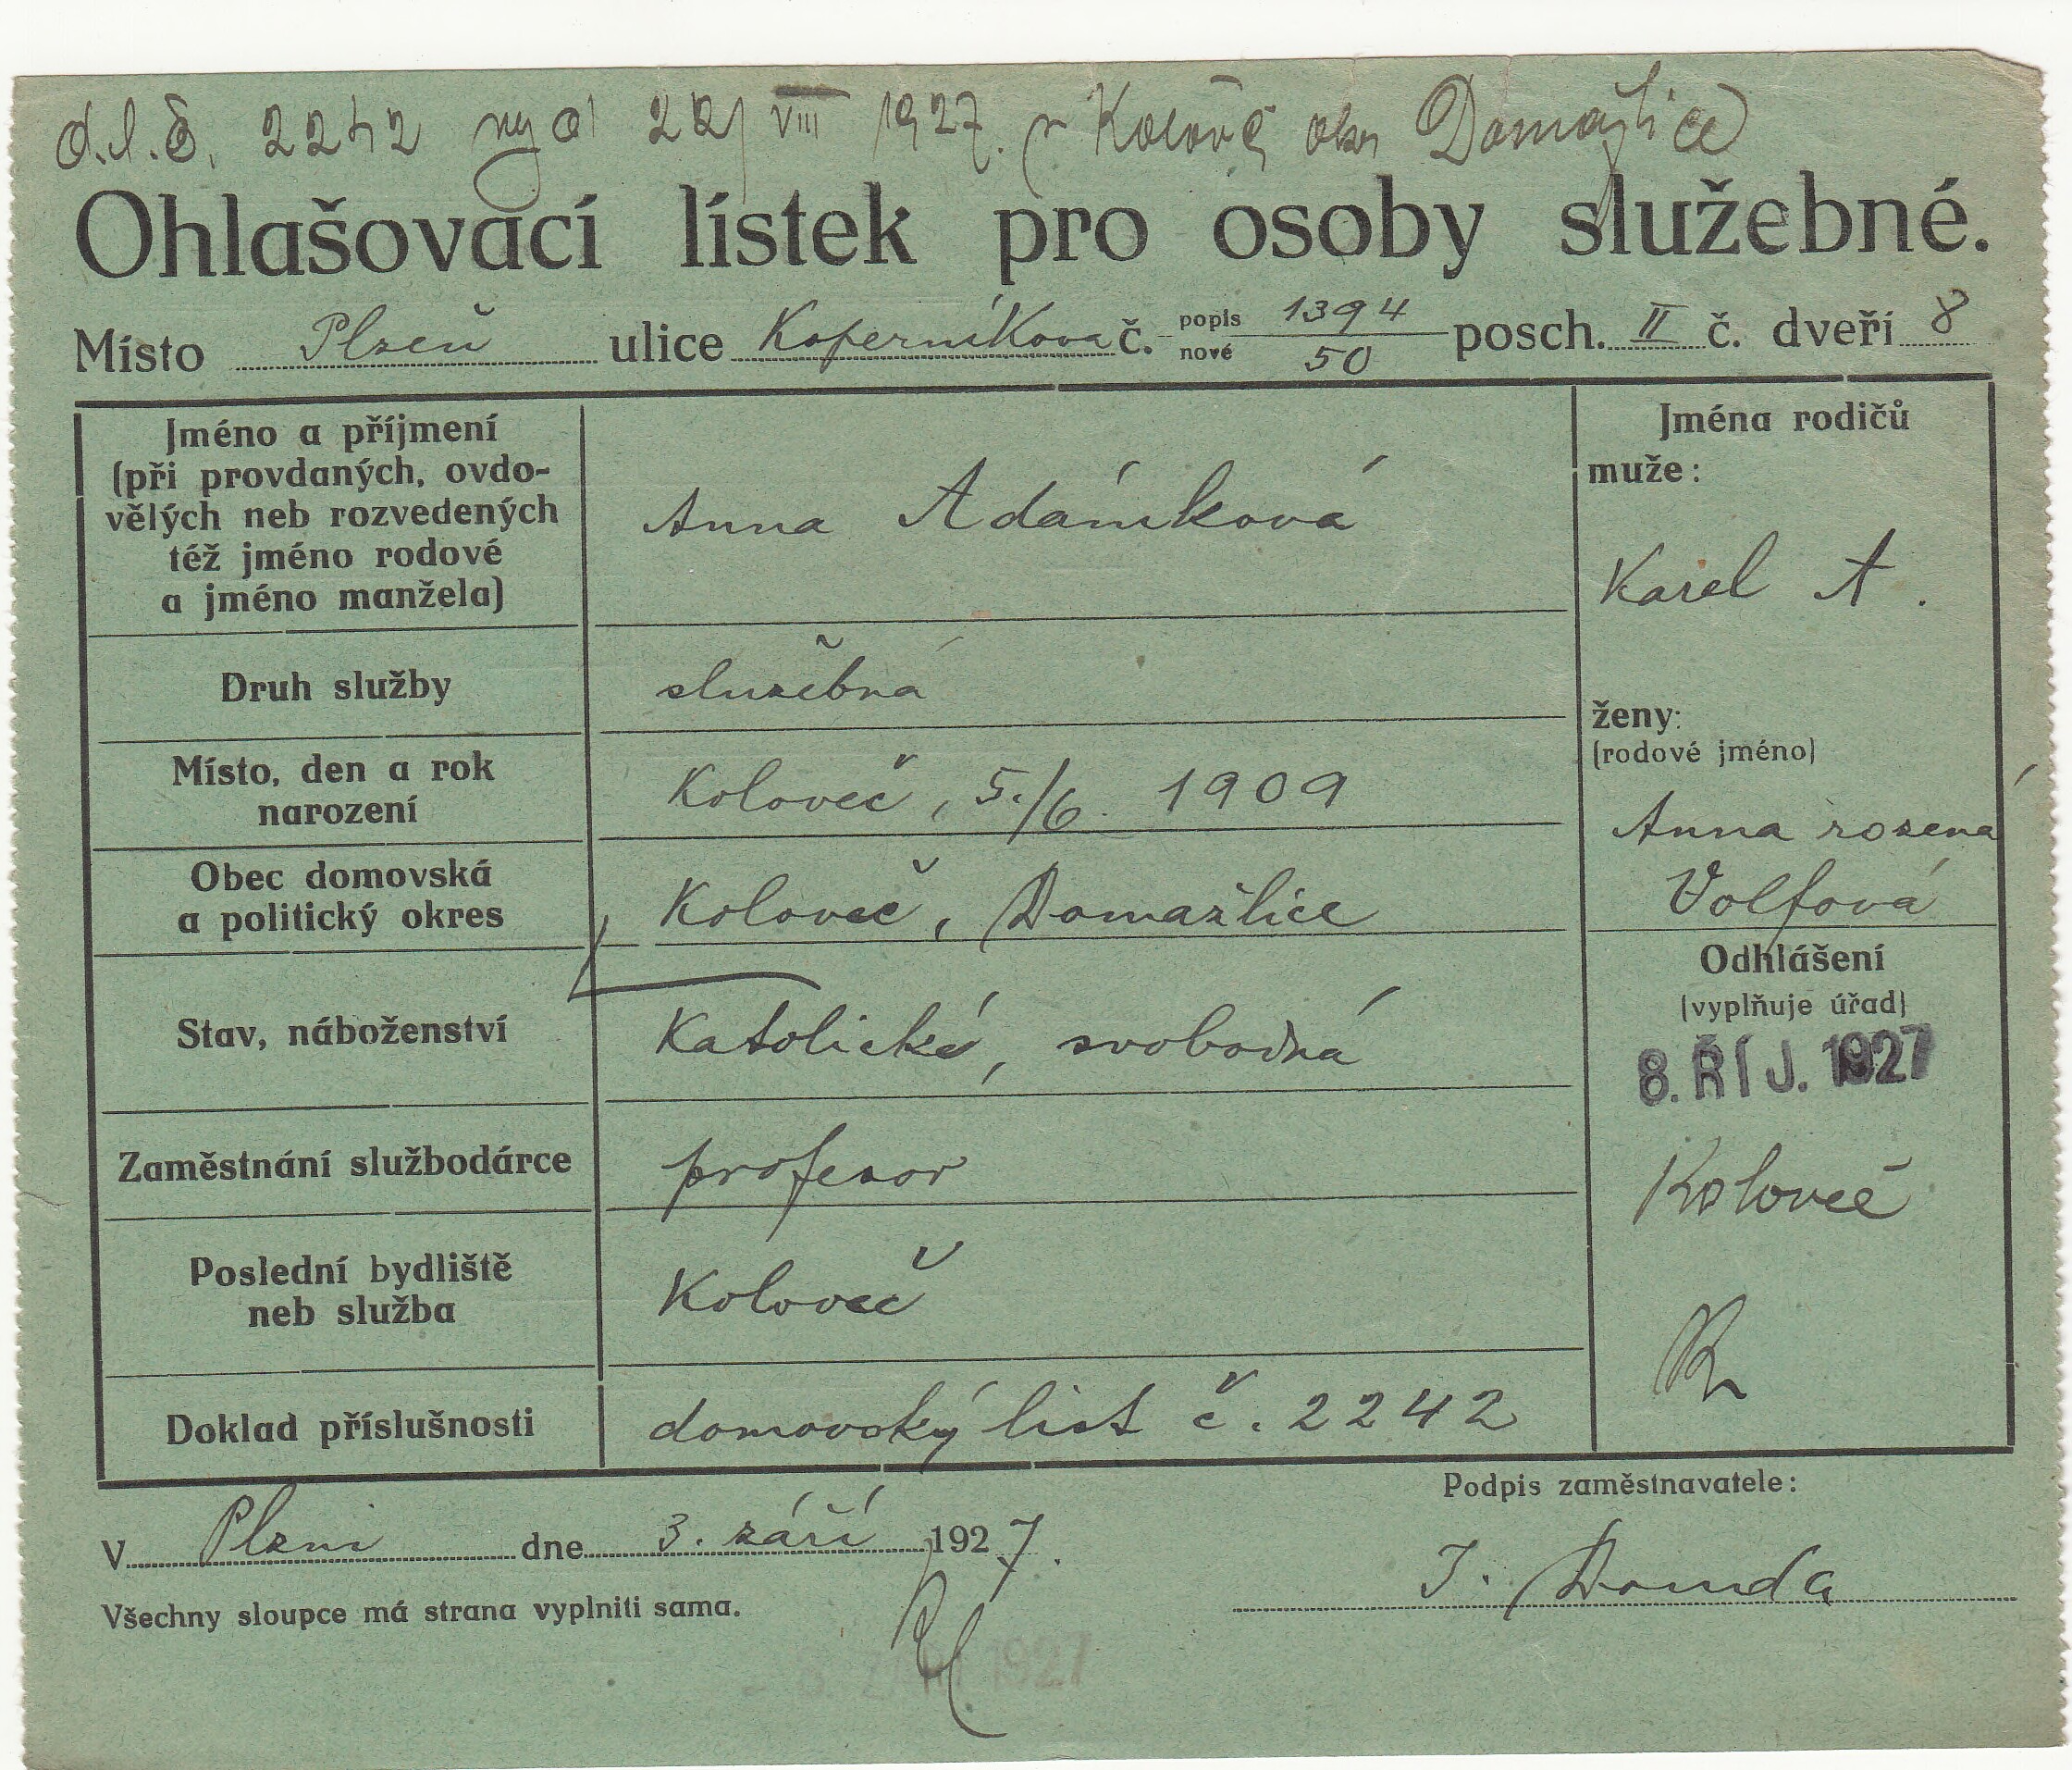 d.l.č. 2242 vyd 22/VIII 1927. v Kolovči okr Domažlice
Ohlašovací lístek pro osoby služebné.
Místo Plzeň ulice Koperníkova č. popis 1394 nové 50 posch. II č. dveří 8
Jméno a příjmení
(při provdaných, ovdo-
vělých neb rozvedených
též jméno rodové
a jméno manžela)
Anna Adámková
Druh služby
služebná
Místo, den a rok
narození
Koloveč, 5./6. 1909
Obec domovská
a politický okres
Koloveč, Domažlice
Stav, náboženství
Katolické, svobodná
Zaměstnání službodárce
profesor
Poslední bydliště
neb služba
Koloveč
Doklad příslušnosti
domovský list č. 2242
Jména rodičů
muže:
Karel A.
ženy:
(rodové jméno)
Anna rozená
Volfová
Odhlášení
(vyplňuje úřad)
8. ŘÍJ. 1927
Koloveč
V Plzni dne 3. září 1927.
Všechny sloupce má strana vyplniti sama.
Podpis zaměstnavatele:
J. Domda
1927